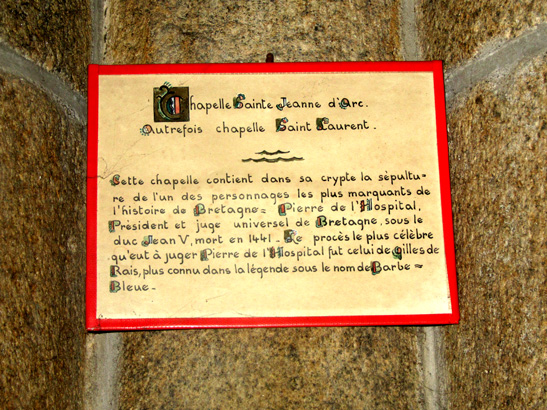 Chapelle Sainte Jeanne d'Arc.
Autrefois chapelle Saint Laurent.
Cette chapelle contient dans sa crypte la sépultu-
re de l'un des personnages les plus marquants de
l'histoire de Bretagne = Pierre de l'Hospital,
Président et juge universel de Bretagne, sous le
duc Jean V, mort en 1441. Le procès le plus célèbre
qu'eut à juger Pierre de l'Hospital fut celui de Gilles de
Rais, plus connu dans la légende sous le nom de Barbe =
Bleue.-